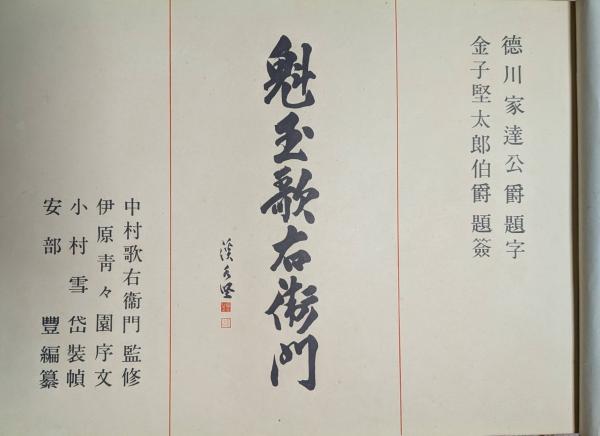 德川家達公爵題字
金子堅太郎伯爵題簽
魁玉歌右衛門
溪水堅
中村歌右衞門監修
伊原靑々園序文
小村雪岱裝幀
安部豐編纂